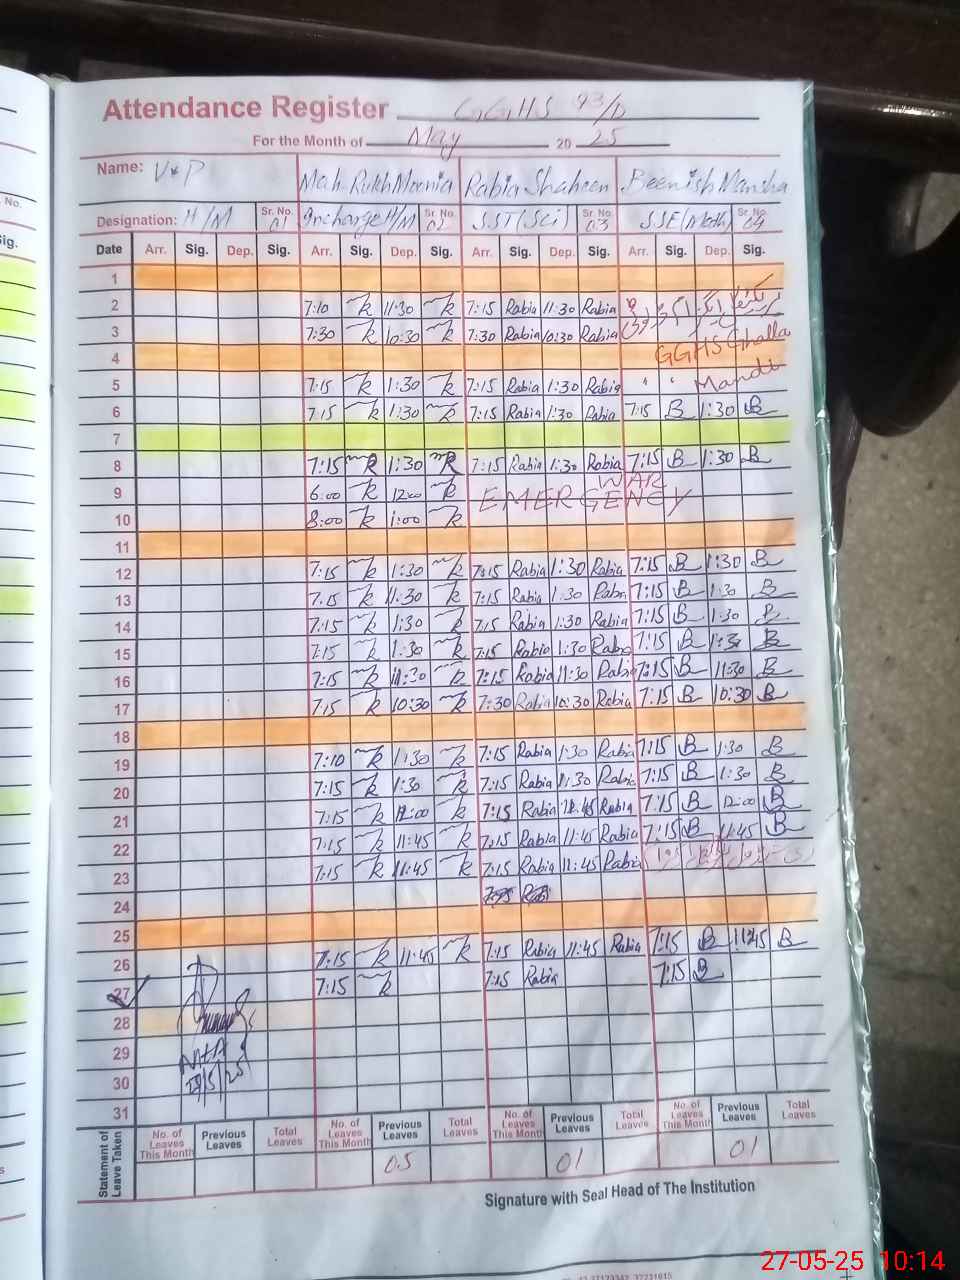 Attendance Register GGHS 93/D
For the Month of May 20 25
Name: V*P Mah-Rukh Rabia Shaheen Beenish Mansha
Designation: H/M Sr. No. 01 Incharge H/M Sr. No. 02 SST (Sci) Sr. No. 03 SSE (Math) Sr. No. 04
Date Arr. Sig. Dep. Sig. Arr. Sig. Dep. Sig. Arr. Sig. Dep. Sig. Arr. Sig. Dep. Sig.
1
2 7:10 11:30 7:15 Rabia 11:30 Rabia
3 7:30 10:30 7:30 Rabia 10:30 Rabia
GGHS Challa
4
5 7:15 1:30 7:15 Rabia 1:30 Rabia " " Mandi
6 7:15 1:30 7:15 Rabia 1:30 Rabia 7:15 B 1:30 B
7
8 7:15 1:30 7:15 Rabia 1:30 Rabia 7:15 B 1:30 B
WAR
9 6:00 12:00 EMERGENCY
10 8:00 1:00
11
12 7:15 1:30 7:15 Rabia 1:30 Rabia 7:15 B 1:30 B
13 7:15 11:30 7:15 Rabia 1:30 Rabia 7:15 B 1:30 B
14 7:15 1:30 7:15 Rabia 1:30 Rabia 7:15 B 1:30 B
15 7:15 1:30 7:15 Rabia 1:30 Rabia 7:15 B 1:30 B
16 7:15 11:30 7:15 Rabia 11:30 Rabia 7:15 B 11:30 B
17 7:15 10:30 7:30 Rabia 10:30 Rabia 7:15 B 10:30 B
18
19 7:10 1:30 7:15 Rabia 1:30 Rabia 7:15 B 1:30 B
20 7:15 1:30 7:15 Rabia 11:30 Rabia 7:15 B 1:30 B
21 7:15 12:00 7:15 Rabia Rabia 7:15 B 12:00 B
22 7:15 11:45 7:15 Rabia 11:45 Rabia 7:15 B 11:45 B
23 7:15 11:45 7:15 Rabia 11:45 Rabia
24
25
26 7:15 11:45 7:15 Rabia 11:45 Rabia 7:15 B 11:45 B
27 7:15 7:15 Rabia 7:15 B
28
29
30
31
Statement of Leave Taken
No. of Leaves This Month Previous Leaves Total Leaves No. of Leaves This Month Previous Leaves Total Leaves No. of Leaves This Month Previous Leaves Total Leaves No. of Leaves This Month Previous Leaves Total Leaves
05 01 01
Signature with Seal Head of The Institution
27-05-25 10:14